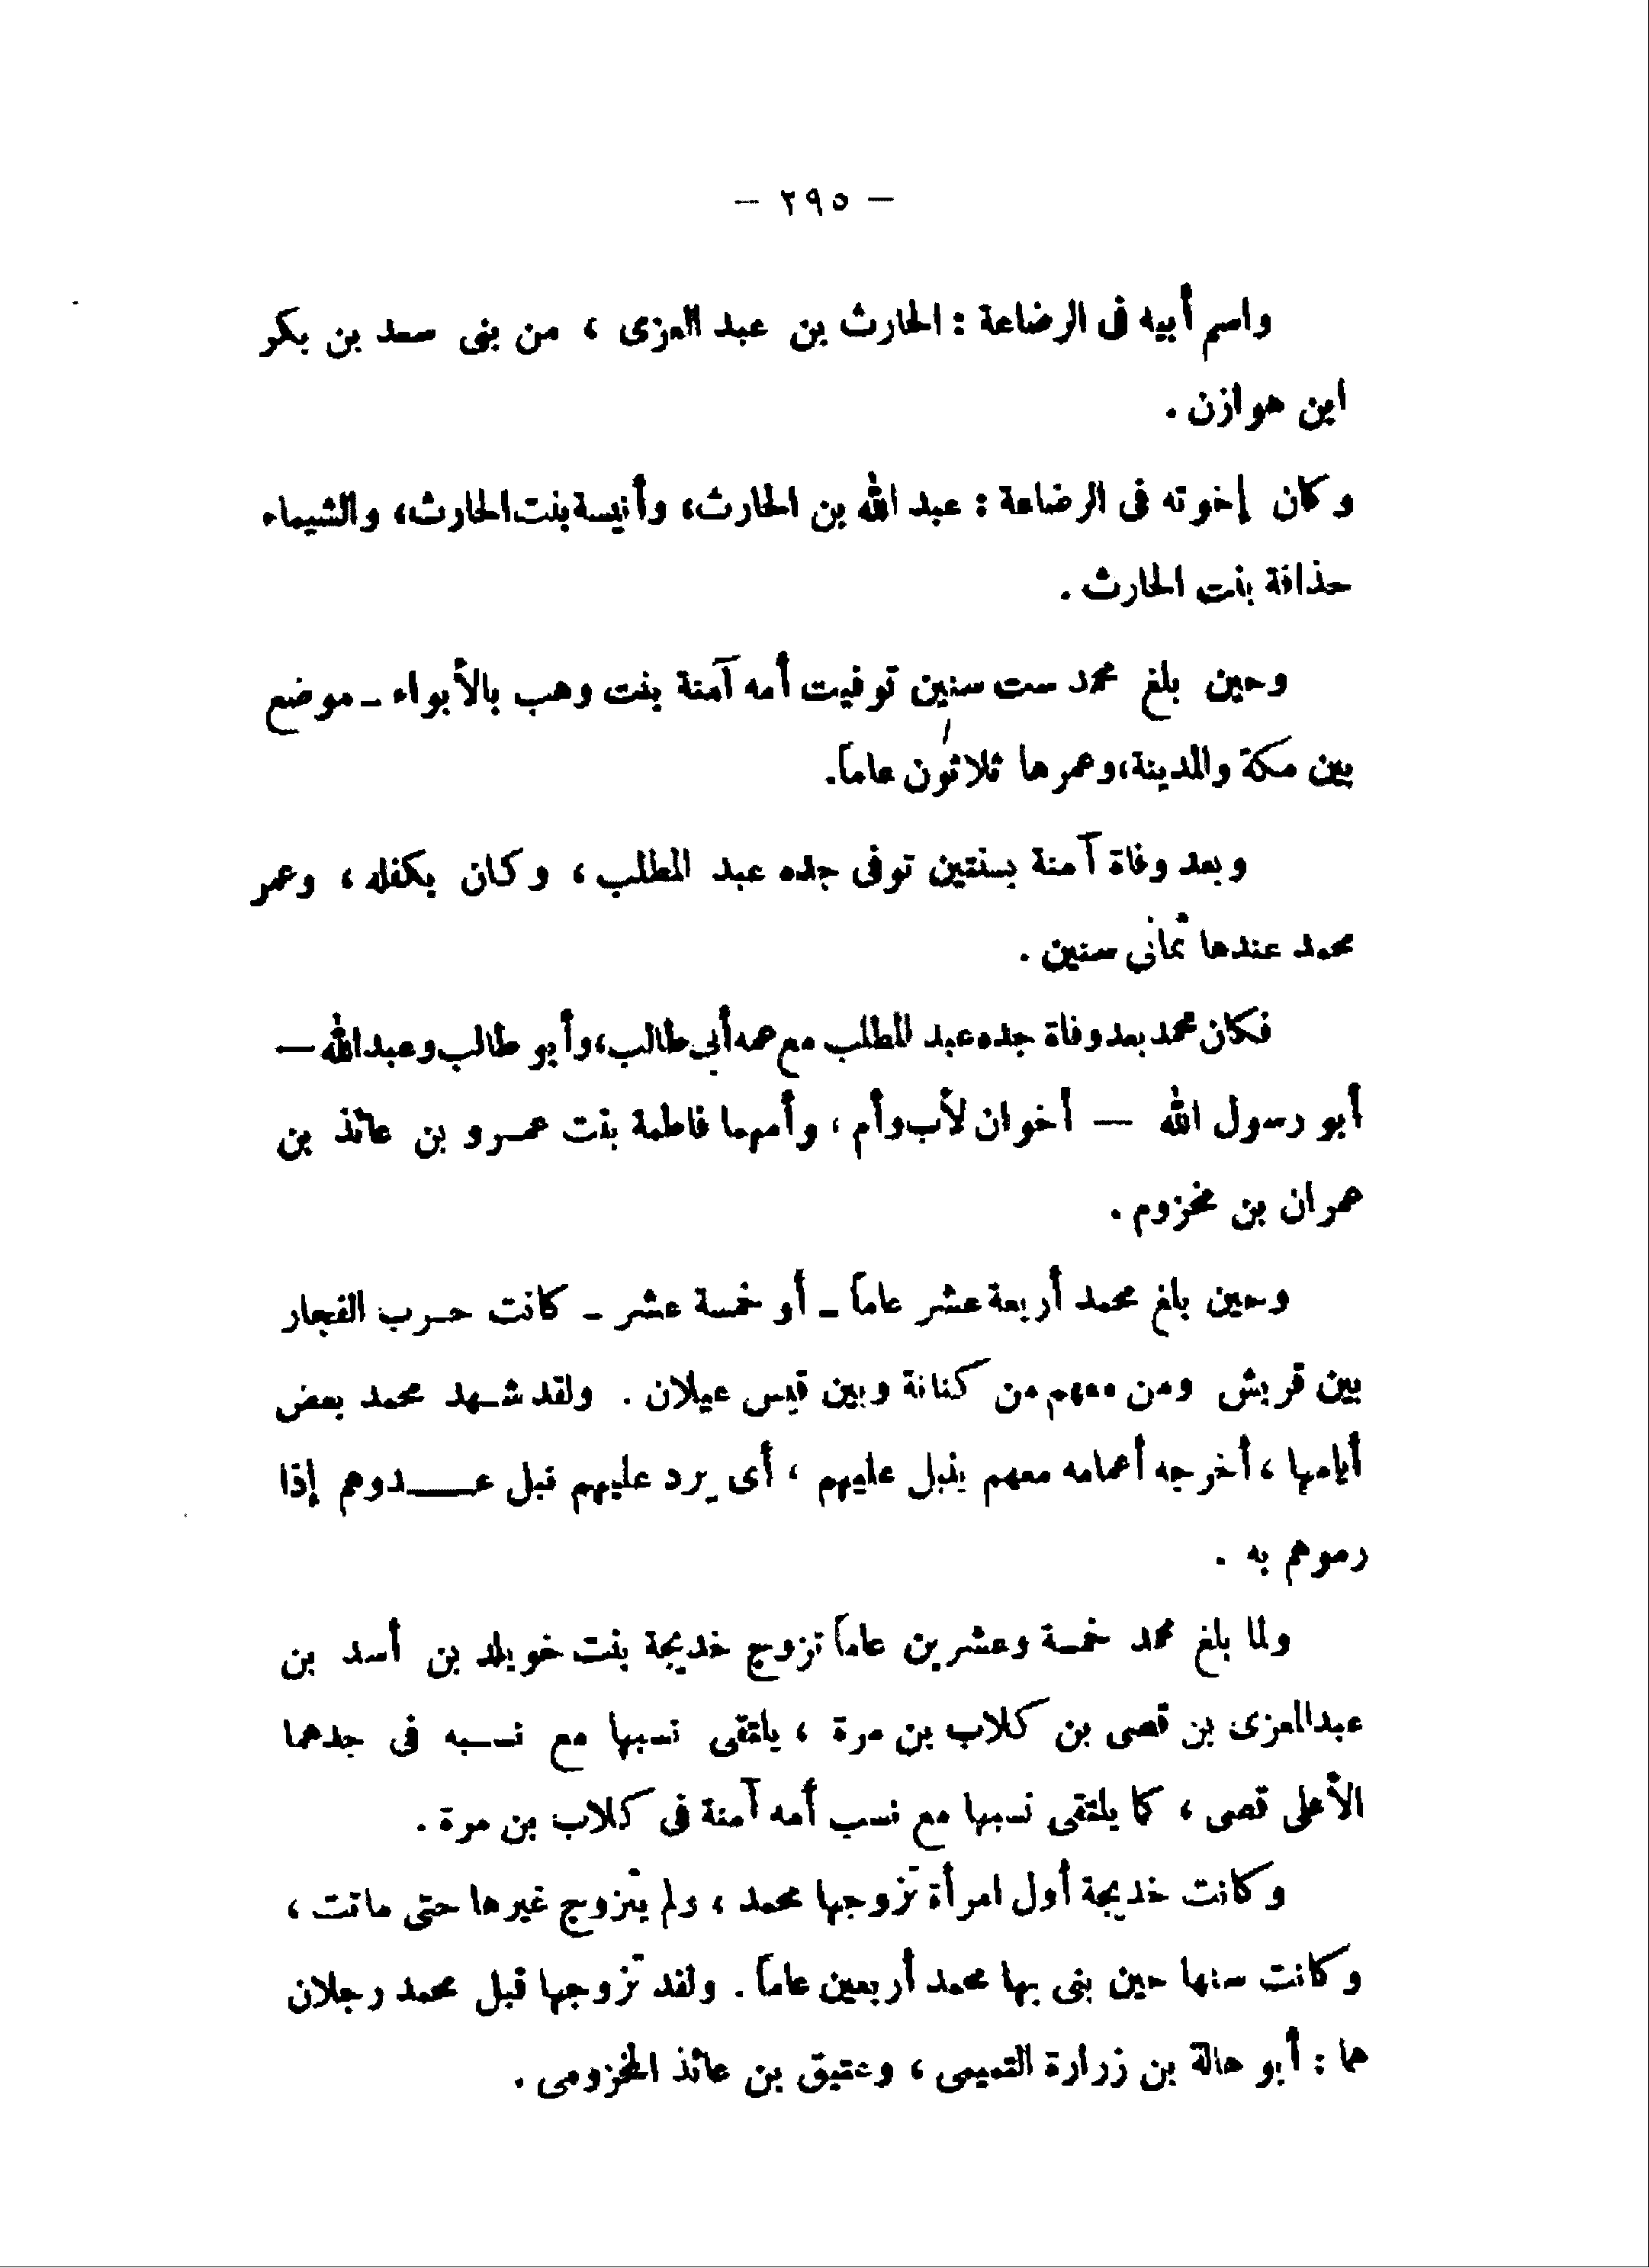 — ٢٩٥ —
واسم أبيه فى الرضاعة : الحارث بن عبد العزى ، من بنى سعد بن بكر
ابن هوازن .
وكان إخوته فى الرضاعة : عبد الله بن الحارث، وأنيسة بنت الحارث، والشيماء
حذافة بنت الحارث .
وحين بلغ محمد ست سنين توفيت أمه آمنة بنت وهب بالأبواء ـ موضع
بين مكة والمدينة، وعمرها ثلاثون عاماً.
وبعد وفاة آمنة بسنتين توفى جده عبد المطلب ، وكان يكفله ، وعمر
محمد عندها ثمانى سنين .
فكان محمد بعد وفاة جده عبد المطلب مع عمه أبي طالب، وأبو طالب وعبد الله —
أبو رسول الله — أخوان لأب وأم ، وأمهما فاطمة بنت عمرو بن عائذ بن
عمران بن مخزوم .
وحين بلغ محمد أربعة عشر عاماً ـ أو خمسة عشر ـ كانت حرب الفجار
بين قريش ومن معهم من كنانة وبين قيس عيلان . ولقد شهد محمد بعض
أيامها ، أخرجه أعمامه معهم ينبل عليهم ، أى يرد عليهم نبل عدوهم إذا
رموهم به .
ولما بلغ محمد خمسة وعشرين عاماً تزوج خديجة بنت خويلد بن أسد بن
عبد العزى بن قصى بن كلاب بن مرة ، يلتقى نسبها مع نسبه فى جدهما
الأعلى قصى ، كما يلتقى نسبها مع نسب أمه آمنة فى كلاب بن مرة .
وكانت خديجة أول امرأة تزوجها محمد ، ولم يتزوج غيرها حتى ماتت ،
وكانت سنها حين بنى بها محمد أربعين عاماً . ولقد تزوجها قبل محمد رجلان
هما : أبو هالة بن زرارة التميمى ، وعتيق بن عائذ المخزومى .